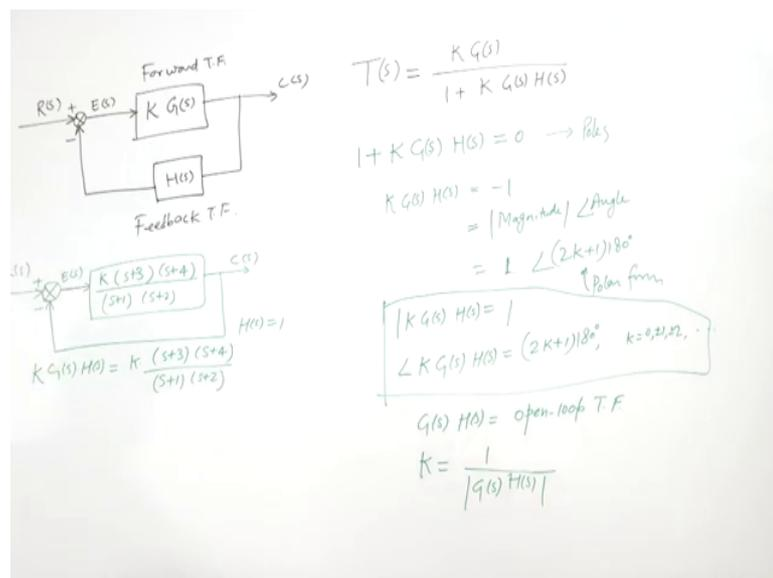 Forward T.F.
R(s) + E(s) K G(s) C(s)
−
H(s)
Feedback T.F.
E(s) K (s+3) (s+4) C(s)
+ (s+1) (s+2)
−
H(s) = 1
K G(s) H(s) = K (s+3) (s+4)
(s+1) (s+2)
T(s) = K G(s)
1 + K G(s) H(s)
1 + K G(s) H(s) = 0 → Poles
K G(s) H(s) = −1
= |Magnitude| ∠Angle
= 1 ∠(2K+1)180°
↑Polar form
|K G(s) H(s) = 1
∠ K G(s) H(s) = (2K+1)180°, K=0,±1,±2, ..
G(s) H(s) = open-loop T.F.
K = 1
|G(s) H(s)|